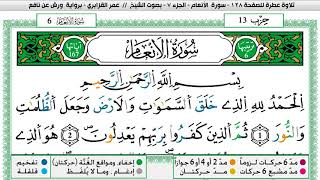 تلاوة عطرة للصفحة ١٢٨ - سورة الأنعام - الجزء ٧ - بصوت الشيخ // عمر القزابري - برواية ورش عن نافع
سورة الأنعام 6
حزب 13
سُورَةُ الأَنْعَامِ
بِسْمِ اللَّهِ الرَّحْمَٰنِ الرَّحِيمِ
الْحَمْدُ لِلهِ الذِے خَلَقَ السَّمَٰوَٰتِ وَالَارْضَ وَجَعَلَ الظُّلُمَٰتِ
وَالنُّورَ ثُمَّ الذِينَ كَفَرُواْ بِرَبِّهِمْ يَعْدِلُونَ ١ هُوَ الذِے
مدّ 6 حركات لزوماً
مدّ 2 أو 4 أو 6 جوازاً
إخفاء، ومواقع الغُنَّة (حركتان)
تفخيم
مدّ مشبع 6 حركات
مدّ حركتان
إدغام، وما لا يُلفَظ
قلقلة